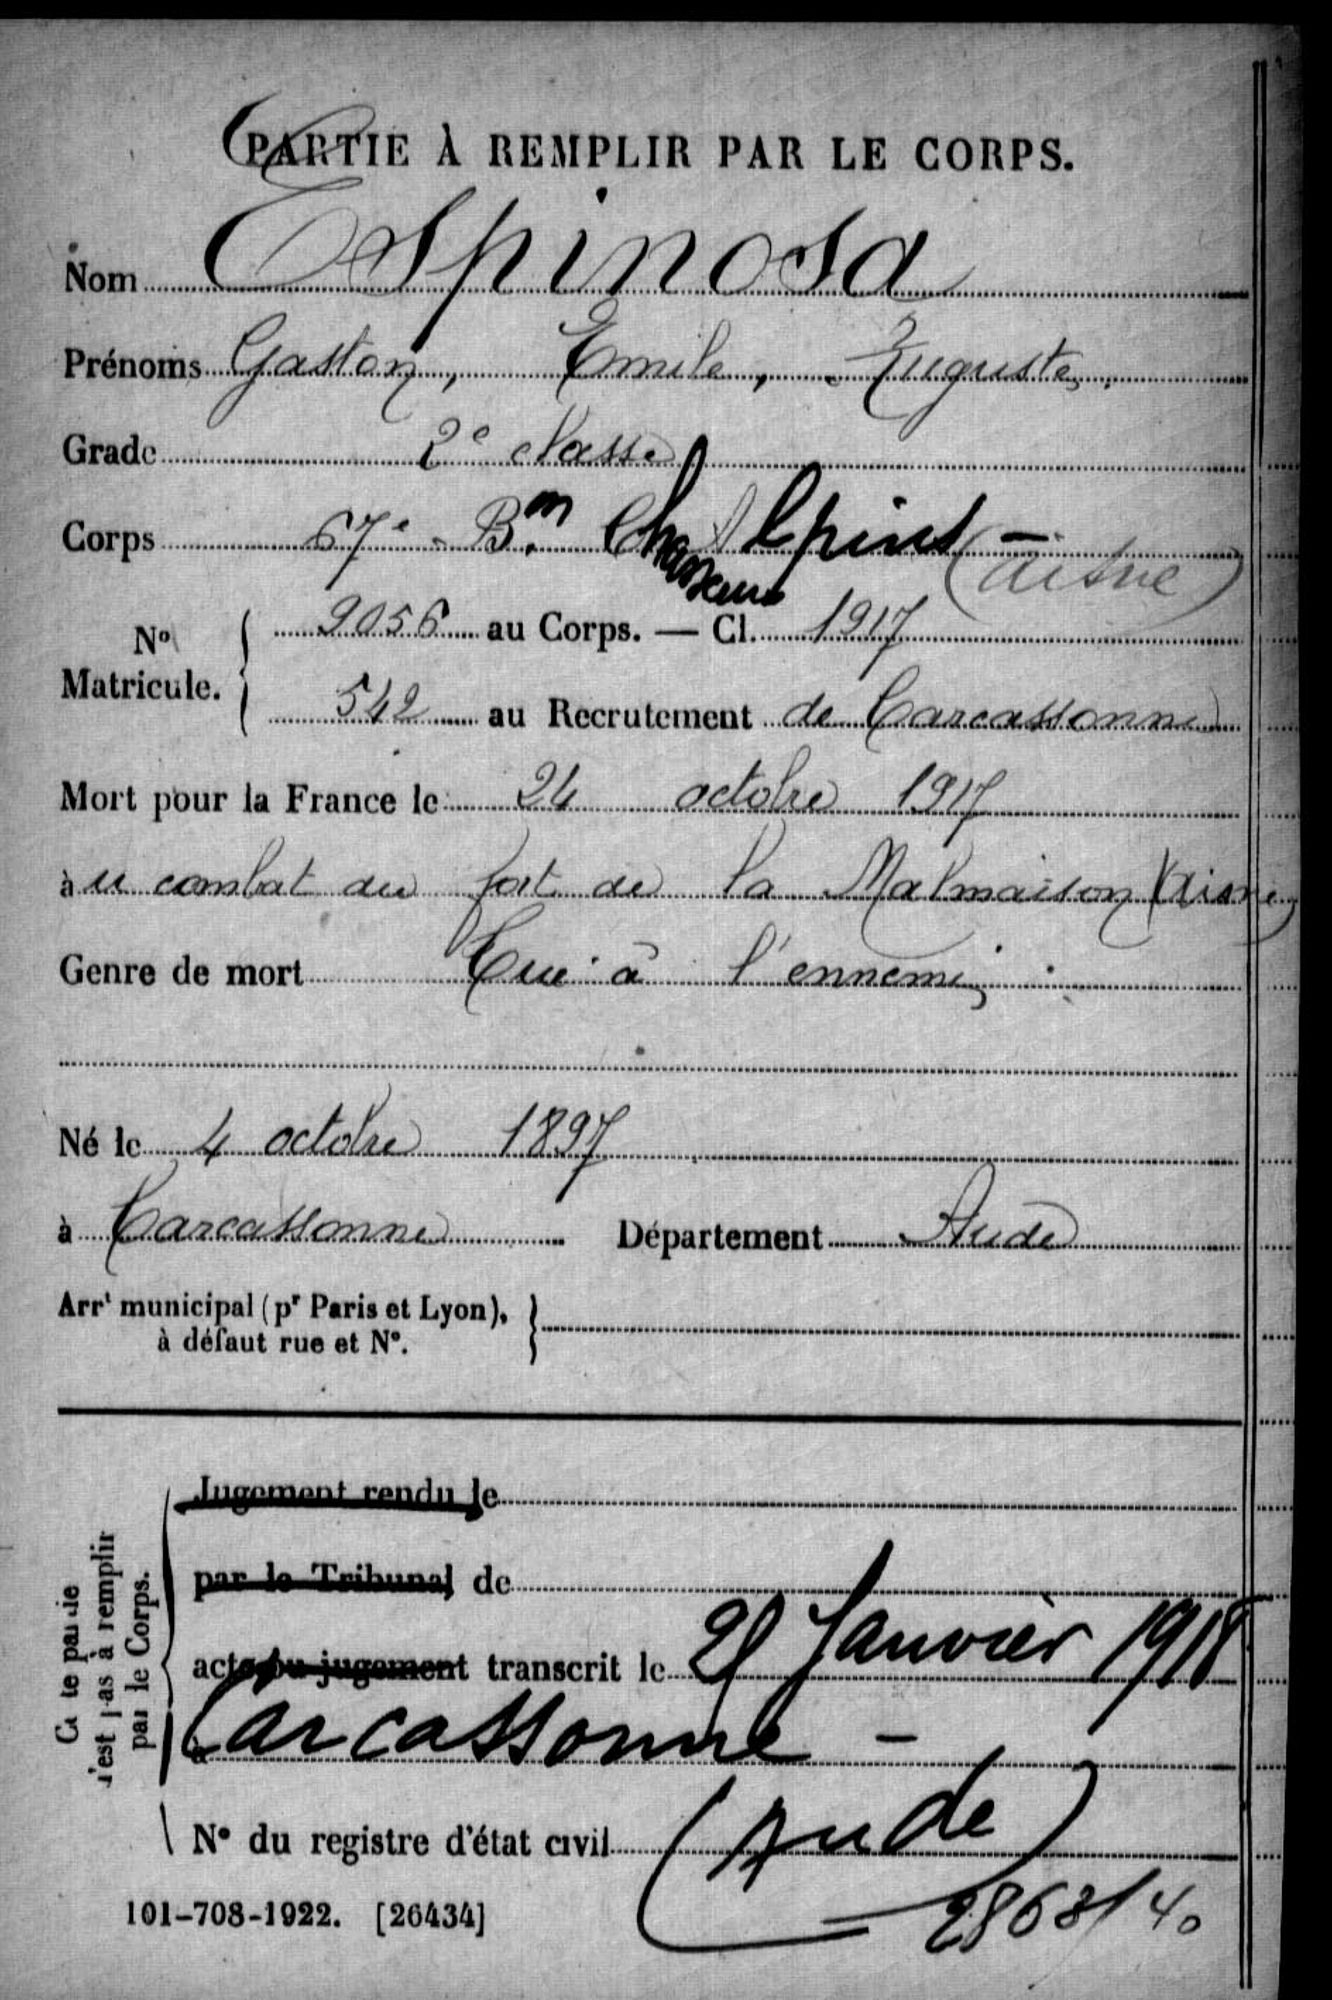 PARTIE À REMPLIR PAR LE CORPS.
Nom Espinosa
Prénoms Gaston, Emile, Auguste,
Grade 2e classe
Corps 67e Bon Chasseurs Alpins -
(Aisne)
No Matricule. { 9056 au Corps. — Cl. 1917
542 au Recrutement de Carcassonne
Mort pour la France le 24 octobre 1917
àu combat du fort de la Malmaison (Aisne)
Genre de mort Tué à l'ennemi
Né le 4 octobre 1897
à Carcassonne Département Aude
Arrt municipal (pr Paris et Lyon), à défaut rue et No. }
Jugement rendu le
par le Tribunal de
acte ou jugement transcrit le Janvier 1918
à Carcassonne -
No du registre d'état civil (Aude)
101-708-1922. [26434]
Cette partie n'est pas à remplir par le Corps.